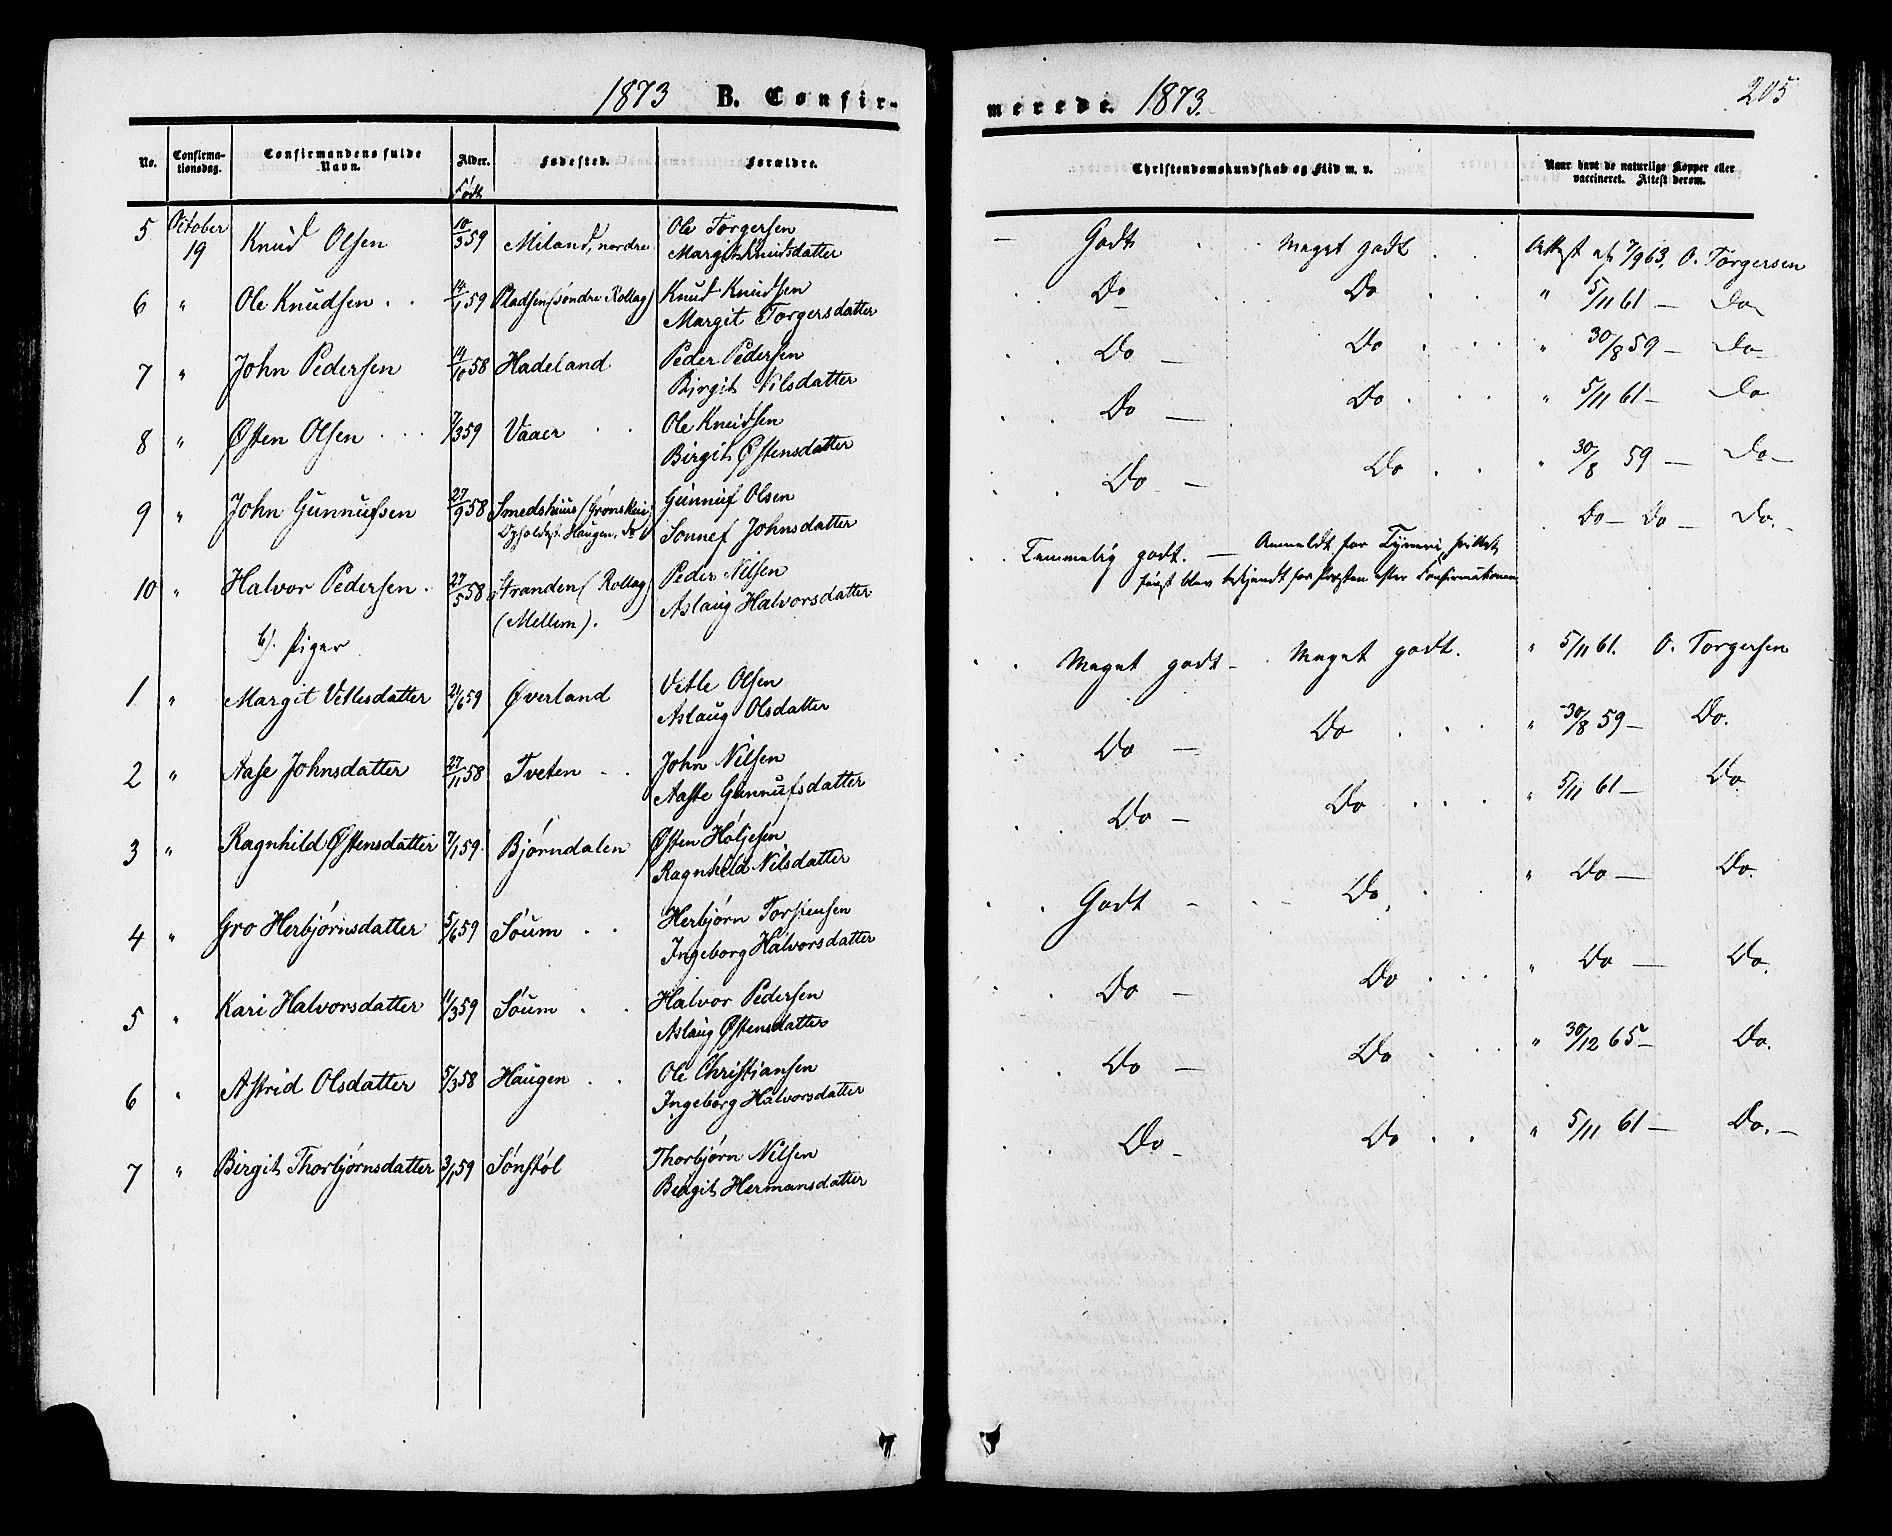 1873 B. Confir-
No. Confirma-tionsdag. Confirmandens fulde Navn. Alder. Fødested. Forældre.
Født
5 October 19 Knud Olsen 10/3 59 Miland, nordre Ole Torgersen
Margit Knudsdatter
6 " Ole Knudsen . . 14/1 59 Pladsen (søndre Rollag) Knud Knudsen
Margit Torgersdatter
7 " John Pedersen 14/10 58 Hadeland Peder Pedersen
Birgit Nilsdatter
8 " Østen Olsen . . . 7/3 59 Vaaer . . Ole Knudsen
Birgit Østensdatter
9 " John Gunnufsen 27/9 58 Smedshuus (Grønskei) Gunnuf Olsen
Opholdsst. Haugen, do Sonnef Johnsdatter
10 " Halvor Pedersen . 27/5 58 Stranden (Rollag) Peder Nilsen
(Mellem). Aslaug Halvorsdatter
b). Piger
1 " Margit Vetlesdatter 24/6 59 Øverland Vetle Olsen
Aslaug Olsdatter
2 " Aase Johnsdatter 27/11 58 Tveten . . John Nilsen
Aaste Gunnufsdatter
3 " Ragnhild Østensdatter 7/1 59 Bjørndalen Østen Høljesen
Ragnhild Nilsdatter
4 " Gro Herbjørnsdatter 5/6 59 Søum . . Herbjørn Torstensen
Ingeborg Halvorsdatter
5 " Kari Halvorsdatter 11/3 59 Søum . . Halvor Pedersen
Aslaug Østensdatter
6 " Astrid Olsdatter 5/3 58 Haugen . . Ole Christiansen
Ingeborg Halvorsdatter
7 " Birgit Thorbjørnsdatter 3/1 59 Sønstøl Thorbjørn Nilsen
Birgit Hermansdatter
merede. 1873. 205
Christendomskundskab og Flid m. v. Naar havt de naturlige Kopper eller vaccineret. Attest derom.
— Godt . . Meget godt . . Attest af 7/9 63. O. Torgersen
Do — Do " 5/11 61 — Do
Do — Do " 30/8 59 — Do
Do — Do " 5/11 61 — Do
Do — Do " 30/8 59 — Do —
Temmelig godt. — Anmeldt for Tyveri, hvilket Do — Do — Do. —
først blev bekjendt for Præsten efter Confirmationen
Meget godt — Meget godt. " 5/11 61. O. Torgersen
Do — Do " 30/8 59 — Do.
Do — Do " 5/11 61 — Do
Godt — Do. " Do — Do.
Do — Do " Do — Do.
Do — Do " 30/12 65 — Do.
Do — Do " 5/11 61 — Do. —